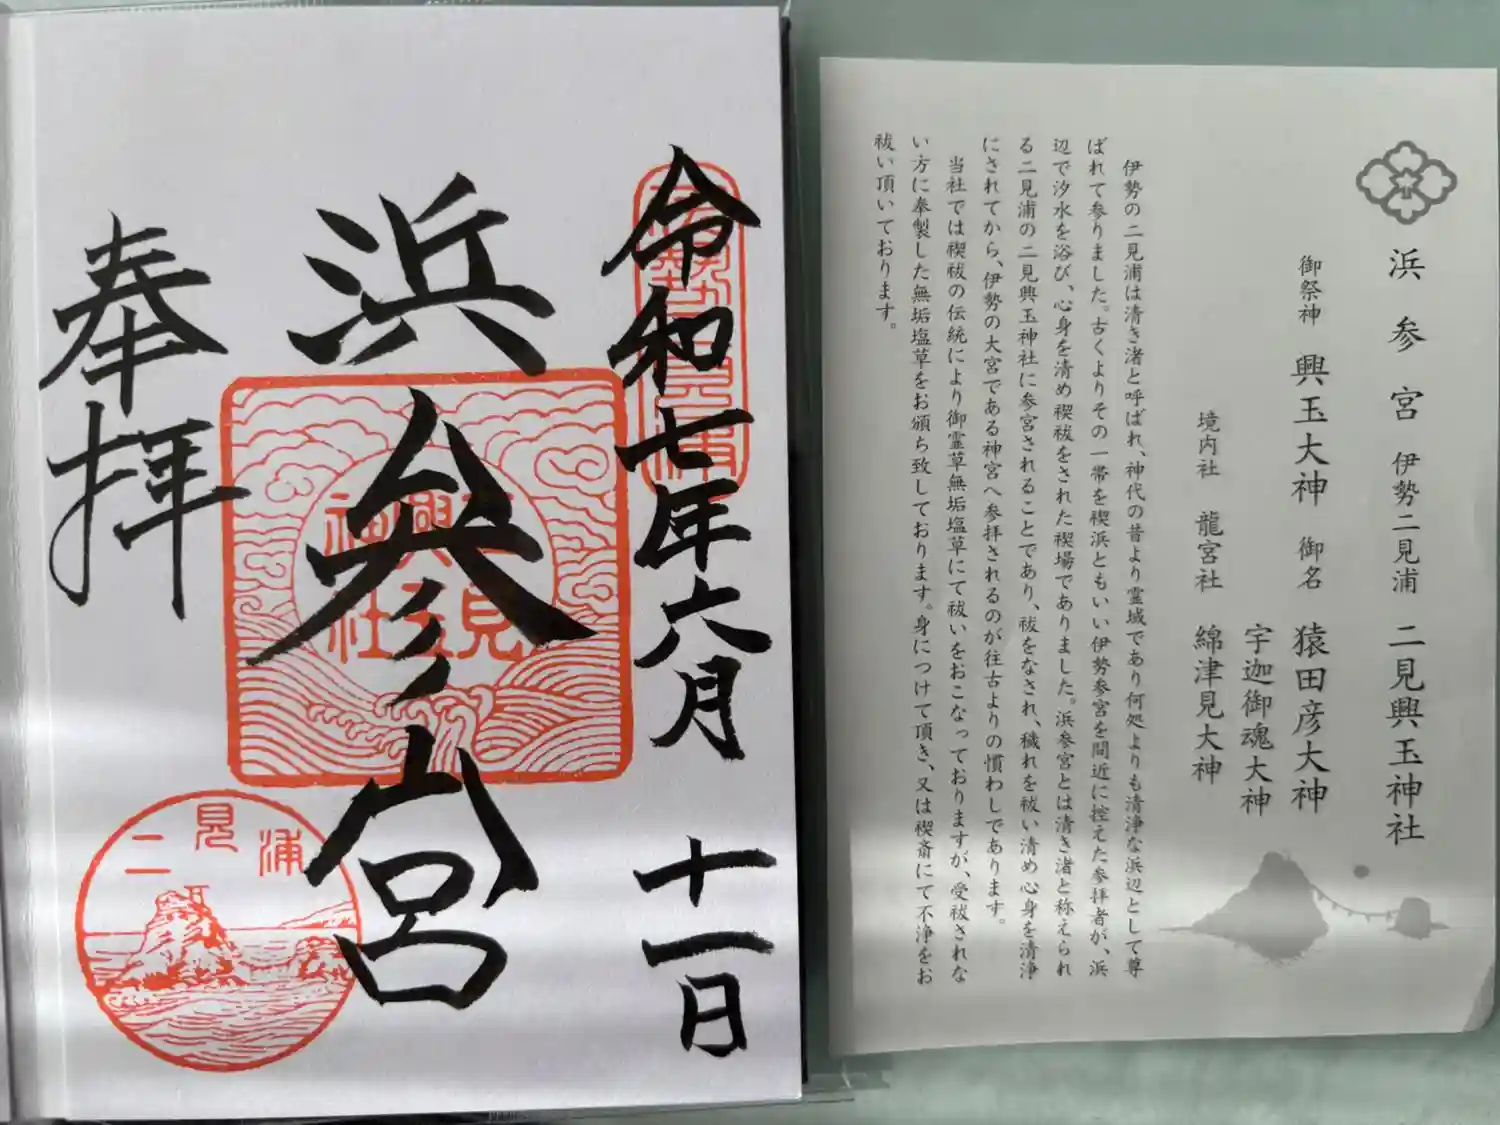 令和七年六月十一日
浜参宮
奉拝
二見興玉神社
二見浦
浜参宮 伊勢二見浦 二見興玉神社
御祭神 興玉大神 御名 猿田彦大神
宇迦御魂大神
境内社 龍宮社 綿津見大神
伊勢の二見浦は清き渚と呼ばれ、神代の昔より霊域であり何処よりも清浄な浜辺として尊
ばれて参りました。古くよりその一帯を禊浜ともいい伊勢参宮を間近に控えた参拝者が、浜
辺で汐水を浴び、心身を清め禊祓をされた禊場でありました。浜参宮とは清き渚と称えられ
る二見浦の二見興玉神社に参宮されることであり、祓をなされ、穢れを祓い清め心身を清浄
にされてから、伊勢の大宮である神宮へ参拝されるのが往古よりの慣わしであります。
当社では禊祓の伝統により御霊草無垢塩草にて祓いをおこなっておりますが、受祓されな
い方に奉製した無垢塩草をお頒ち致しております。身につけて頂き、又は禊斎にて不浄をお
祓い頂いております。